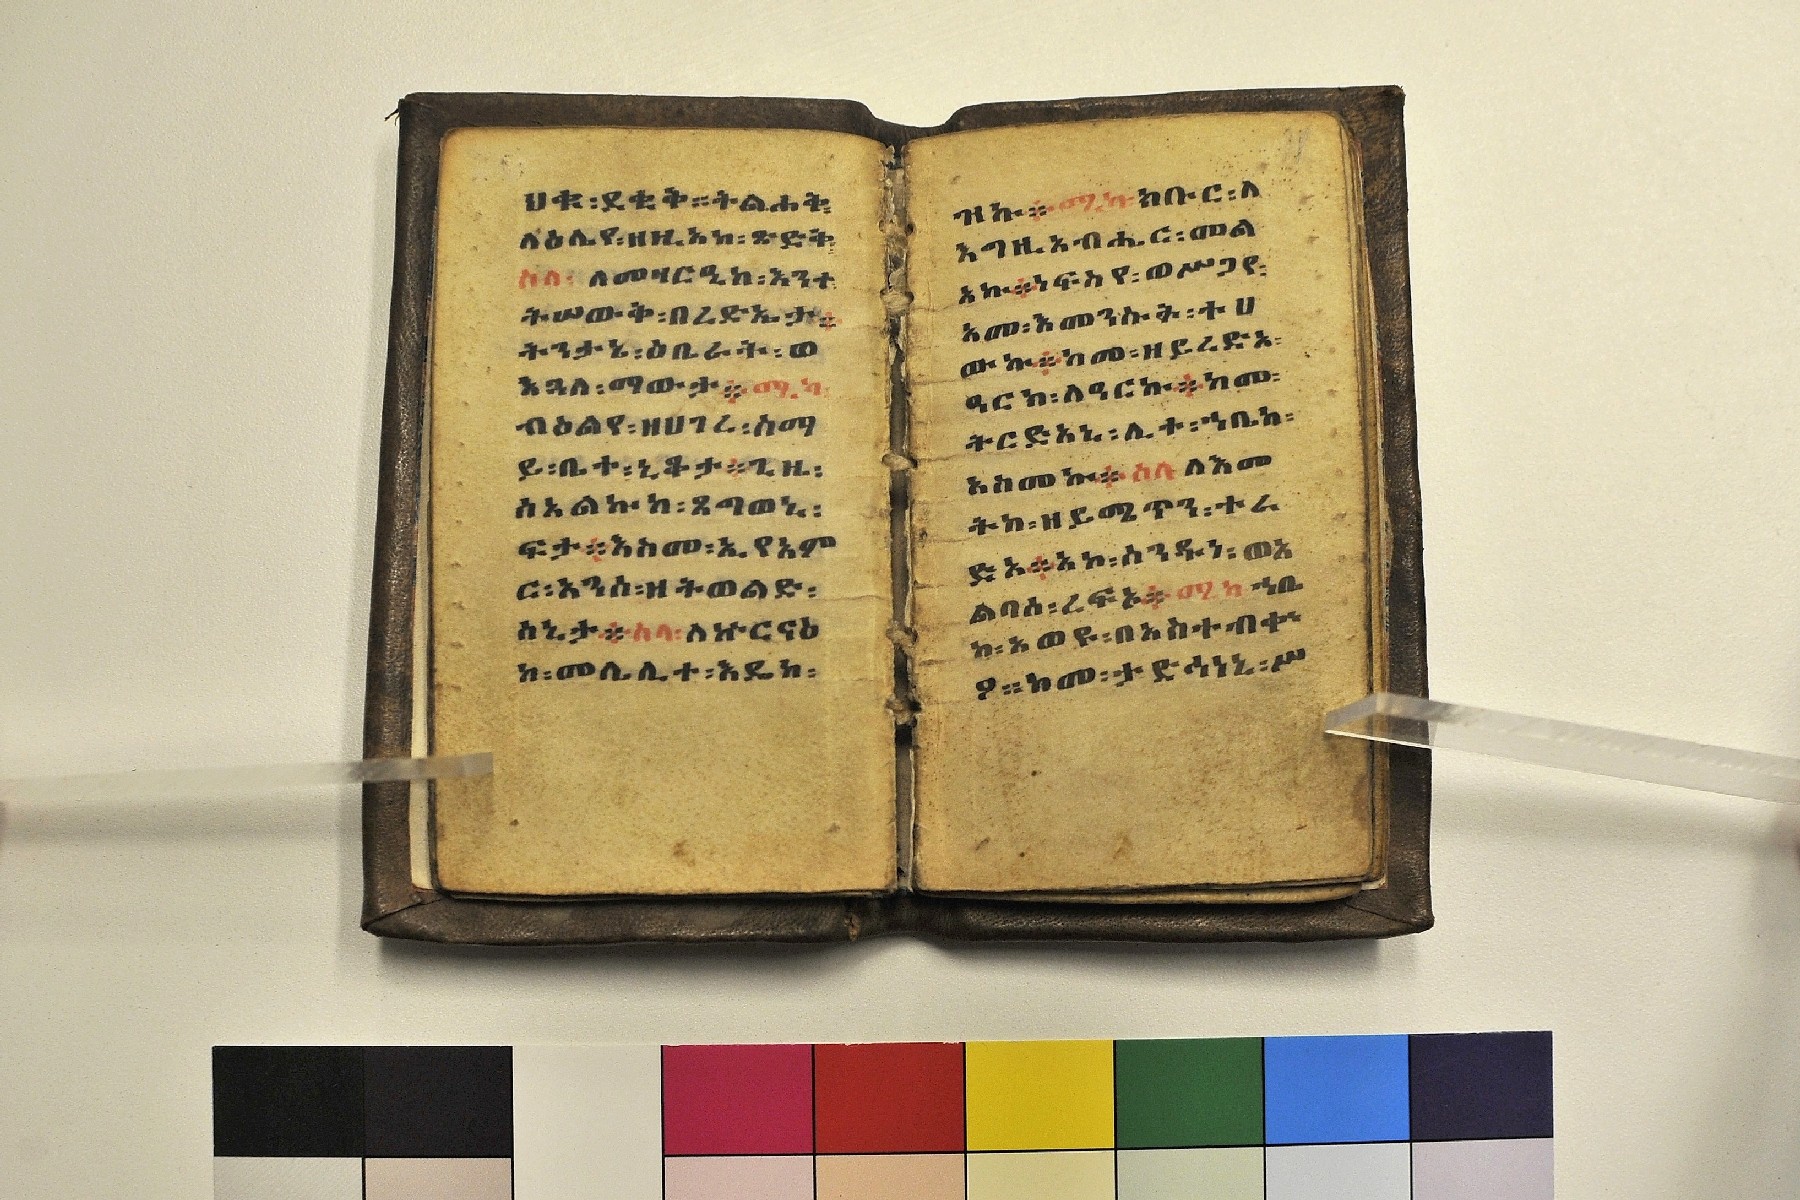 ህቂ፡ደቂቅ፡፡ትልሕቅ
ለዕሌየ፡ዘዚአከ፡ጽድቅ
ሰላ፡ ለመዛርዒከ፡እንተ
ትሠውቅ፡በረድኤታ።
ትንታኔ፡ዕቤራት፡ወ
እጓለ፡ማውታ። ሚካ
ብዕልየ፡ዘሀገረ፡ሰማ
ይ፡ቤተ፡ኒቆታ።ጊዜ፡
ስእልኩከ፡ጸግወኒ፡
ፍታ።እስመ፡ኢየአም
ር፡እንስ፡ዘትወልድ፡
ሰኒታ።ሰላ፡ለኵርናዕ
ከ፡መሌሊተ፡እዴከ፡
ዝኩ። ሚካ ክቡር፡ለ
እግዚአብሔር፡መል
አኩ።ነፍስየ፡ወሥጋየ፡
አመ፡አመንኩት፡ተሀ
ውኩ።ከመ፡ዘይረድእ፡
ዓርክ፡ለዓርኩ።ከመ፡
ትርድአኒ፡ሊተ፡ኀቤከ፡
አስመኩ።ሰላ ለእመ
ትከ፡ዘይሜጥን፡ተራ
ድእ።አከ፡ስንዱነ፡ወአ
ልባሰ፡ረፍኦ።ሚካ ኀቤ
ከ፡አወዩ፡በአስተብቍ
ዖ፡፡ከመ፡ታድኅነኒ፡ሥ